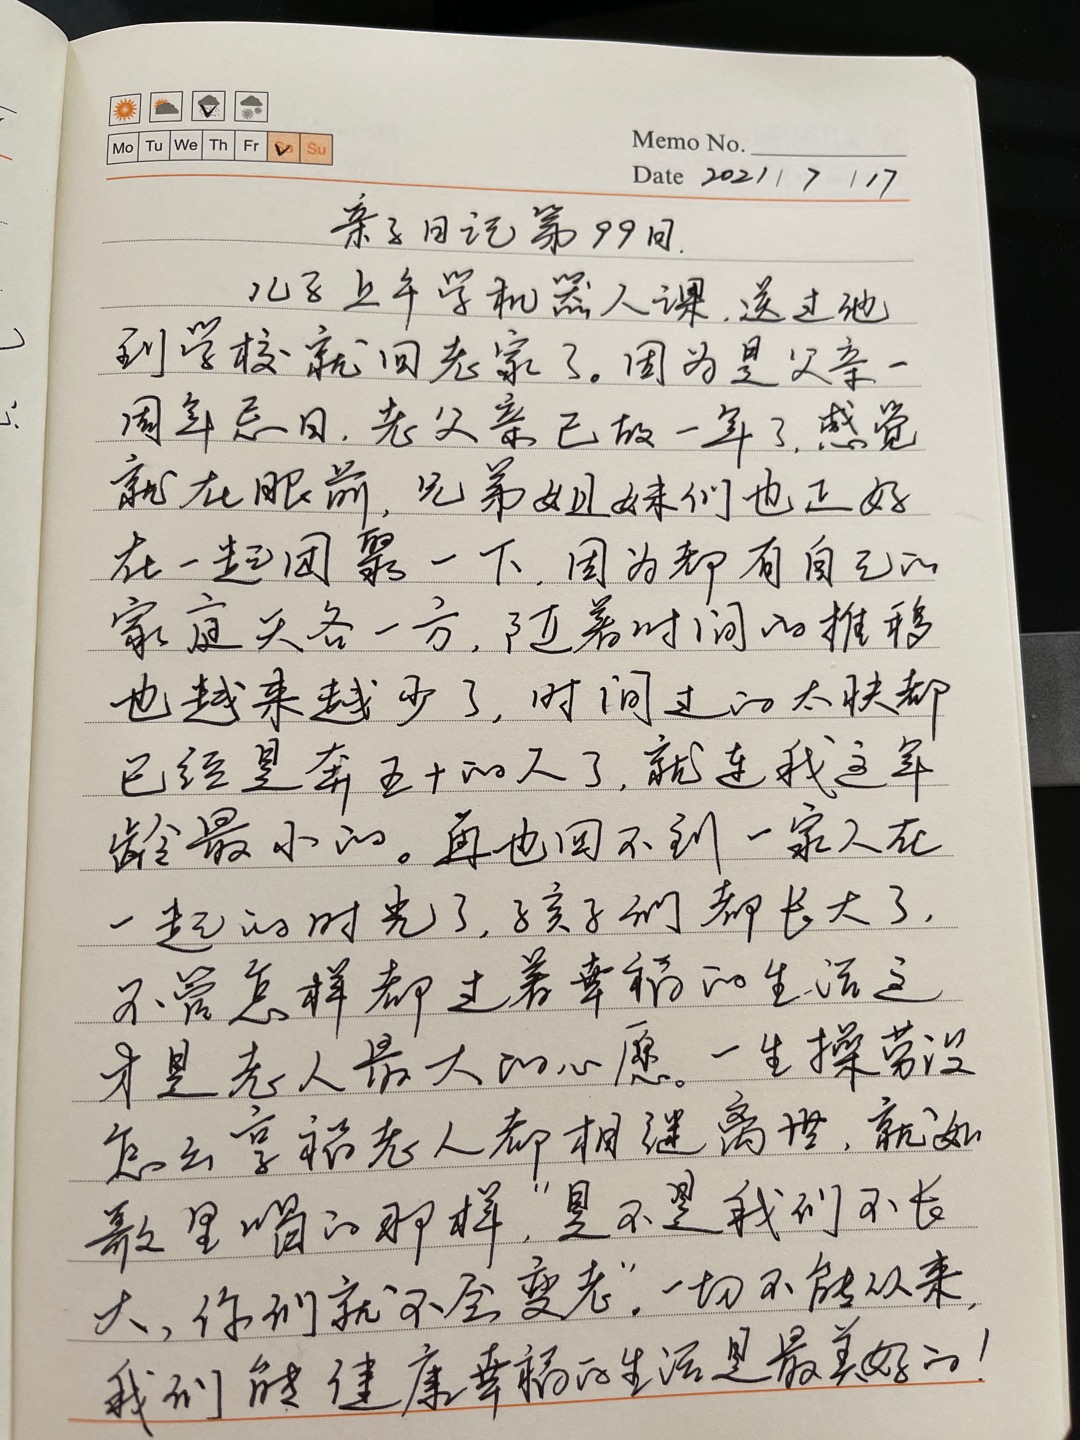 Mo Tu We Th Fr Sa Su
Memo No.
Date 2021 / 7 / 17
亲子日记第99日.
儿子上午学机器人课,送过他
到学校就回老家了。因为是父亲一
周年忌日,老父亲已故一年了,感觉
就在眼前,兄弟姐妹们也正好
在一起团聚一下,因为都有自己的
家庭天各一方,随着时间的推移
也越来越少了,时间过的太快都
已经是奔五十的人了,就连我这年
龄最小的。再也回不到一家人在
一起的时光了,孩子们都长大了,
不管怎样都过着幸福的生活这
才是老人最大的心愿。一生操劳没
怎么享福老人都相继离世,就如
歌里唱的那样,“是不是我们不长
大,你们就不会变老”。一切不能从来,
我们能健康幸福的生活是最美好的!